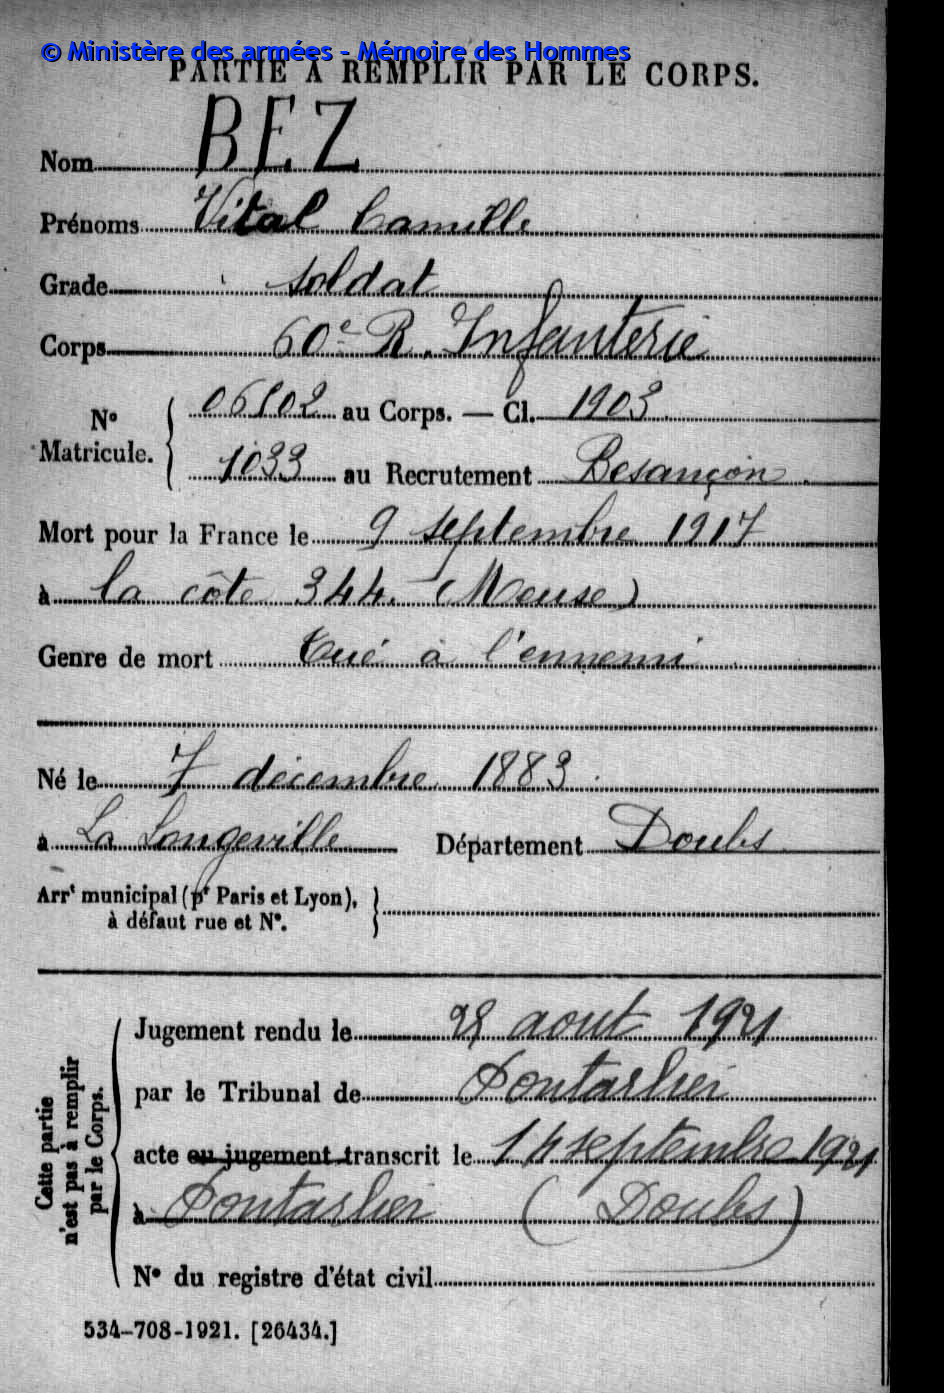 © Ministère des armées - Mémoire des Hommes
PARTIE À REMPLIR PAR LE CORPS.
Nom BEZ
Prénoms Vital Camille
Grade soldat
Corps 60e R. Infanterie
N° Matricule. { 06102 au Corps. — Cl. 1903.
1033 au Recrutement Besançon.
Mort pour la France le 9 septembre 1917
à la côte 344. (Meuse)
Genre de mort Tué à l'ennemi
Né le 7 décembre 1883.
à La Longeville Département Doubs
Arrt municipal (pr Paris et Lyon),
à défaut rue et N°.
Cette partie
n'est pas à remplir
par le Corps.
Jugement rendu le août 1921
par le Tribunal de Pontarlier
acte ou jugement transcrit le 14 septembre 1921
à Pontarlier (Doubs)
N° du registre d'état civil
534-708-1921. [26434.]